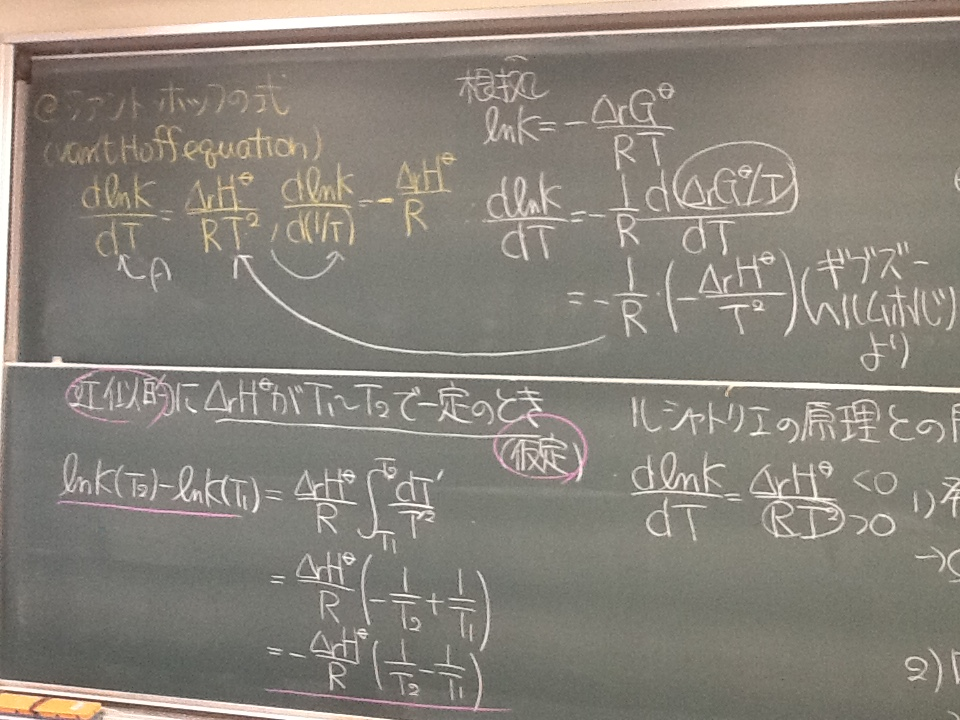 @ファントホッフの式
(van't Hoff equation)
dlnK/dT = ΔrH°/RT², dlnK/d(1/T) = -ΔrH°/R
根拠
lnK = -ΔrG°/RT
dlnK/dT = -1/R d(ΔrG°/T)/dT
= -1/R・(-ΔrH°/T²)(ギブズ-
ヘルムホルツ
より
近似的にΔrH°がT₁~T₂で一定のとき
(仮定)
lnK(T₂)-lnK(T₁) = ΔrH°/R ∫T₁T₂ dT/T²
= ΔrH°/R (-1/T₂ + 1/T₁)
= -ΔrH°/R (1/T₂ - 1/T₁)
ルシャトリエの原理との
dlnK/dT = ΔrH°/RT² <0 >0
1)
2)